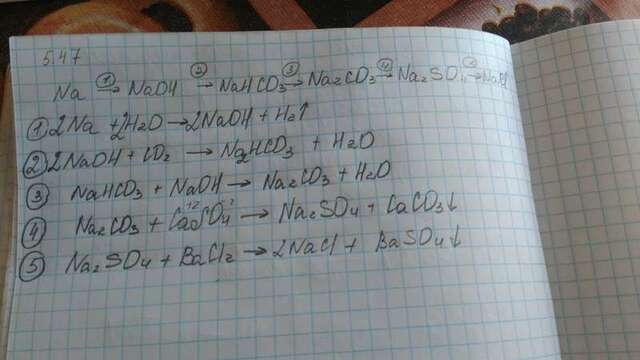 5.47
Na ①→ NaOH ②→ NaHCO3 ③→ Na2CO3 ④→ Na2SO4 → NaCl
① 2Na + 2H2O → 2NaOH + H2↑
② 2NaOH + CO2 → Na2HCO3 + H2O
③ NaHCO3 + NaOH → Na2CO3 + H2O
④ Na2CO3 + CaSO4 → Na2SO4 + CaCO3↓
⑤ Na2SO4 + BaCl2 → 2NaCl + BaSO4↓